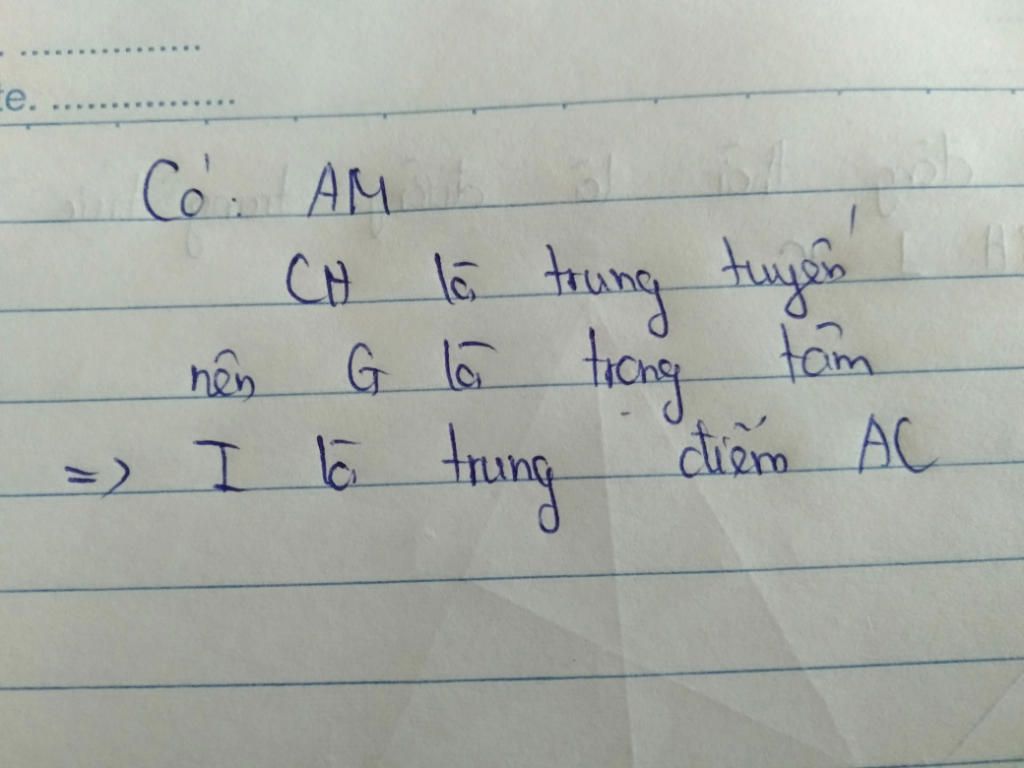 te. ................
Có: AM
CH là trung tuyến
nên G là trọng tâm
=> I là trung điểm AC